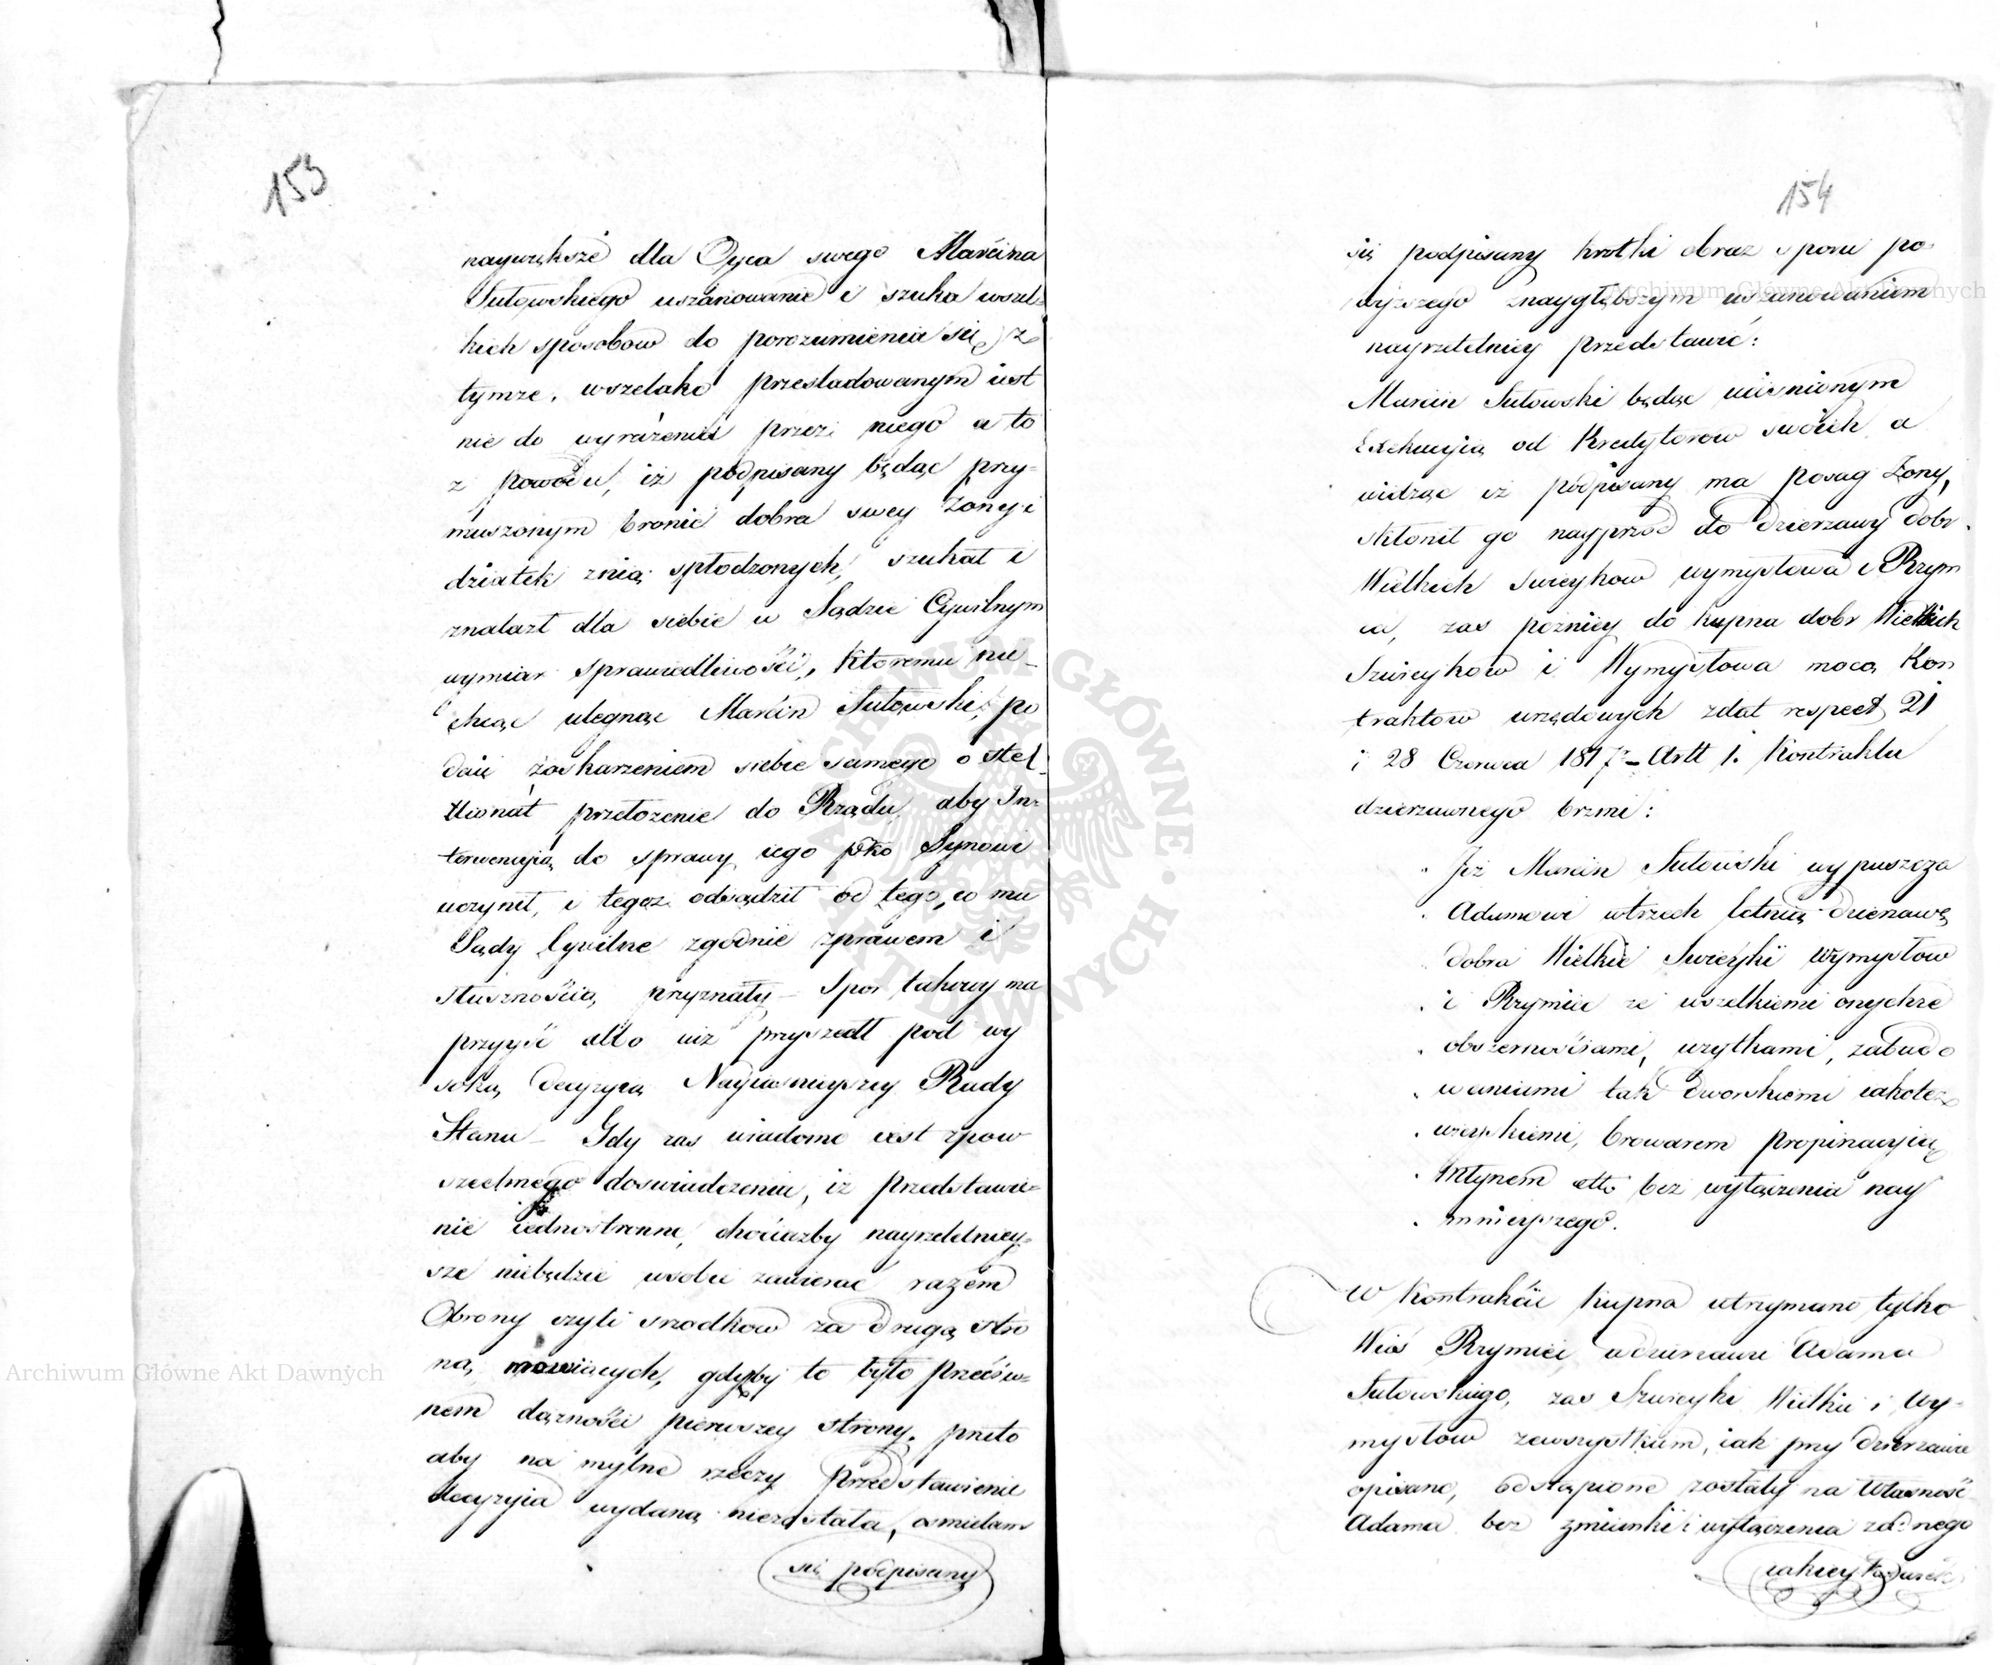 153
naywiększe dla Oyca swego Marcina
Sutowskiego uszanowanie i szuka wszel-
kich sposobow do porozumienia się z
tymze, wszelako przesladowanym iest
nie do wyrażenia przez niego a to
z powodu, iż podpisany będąc przy-
muszonym bronić dobra swey Żony i
dziatek znią spłodzonych, szukał i
znalazł dla siebie w Sądzie Cywilnym
wymiar sprawiedliwości, ktoremu nie-
chcąc ulegnąc Marcin Sutowski, po
daie zaskarzeniem siebie samego o stel-
lionat przełozenie do Rządu, aby In-
terwencyią do sprawy iego pko Synowi
uczynił, i tegoz odsądził od tego, co mu
Sądy Cywilne zgodnie zprawem i
słusznością przyznały – Spor takowy ma
przyyść albo iuż przyszedł pod wy
soką decyzyią Nayiasnieyszey Rady
Stanu – Gdy zas wiadomo iest zpow
szechnego doswiadczenia, iz przedstawie-
nie iednostronne, chociazby nayrzetelniey-
sze niebędzie wsobie zawierać razem
Obrony czyli srzodkow za drugą stro
ną mowiących, gdyby to było przeciw-
nem dązności pierwszey strony, przeto
aby na mylne rzeczy przedstawienie
decyzyia wydaną niezostała, osmielam
się podpisany
154
się podpisany krotki obraz sporu po
wyższego znaygłębszym uszanowaniem
nayrzetelniey przedstawić:
Marcin Sutowski będąc uciśnionym
Exekucyią od Kredytorow swoich a
widząc iż podpisany ma posag Żony,
skłonił go nayprzod do dzierzawy dobr
Wielkich Swieykow Wymysłowa i Rzym
ca, zas pożniey do kupna dobr Wielkich
Szwieykow i Wymysłowa mocą Kon
traktow urzędowych zdat respect 21
i 28 Czerwca 1817 – Artt 1. Kontraktu
dzierzawnego brzmi:
„ Iż Marcin Sutowski wypuszcza
„ Adamowi wtrzech letnią dzierzawę
„ dobra Wielkie Swieyki Wymysłow
„ i Rzymiec ze wszelkiemi onychże
„ obszernościami, uzytkami, zabudo
„ waniami tak dworskiemi iakoteż
„ wieyskiemi, browarem propinacyią
„ Młynem etto bez wyłączenia nay
„ mnieyszego.
W Kontrakcie kupna utrzymano tylko
Wieś Rzymiec, wdzierzawie Adama
Sutowskiego, zas Szwieyki Wielkie i Wy-
mysłow zewszystkiem, iak przy dzierzawie
opisano, odstąpione zostały na Własność
Adama bez zmianki i wyłączenia zadnego